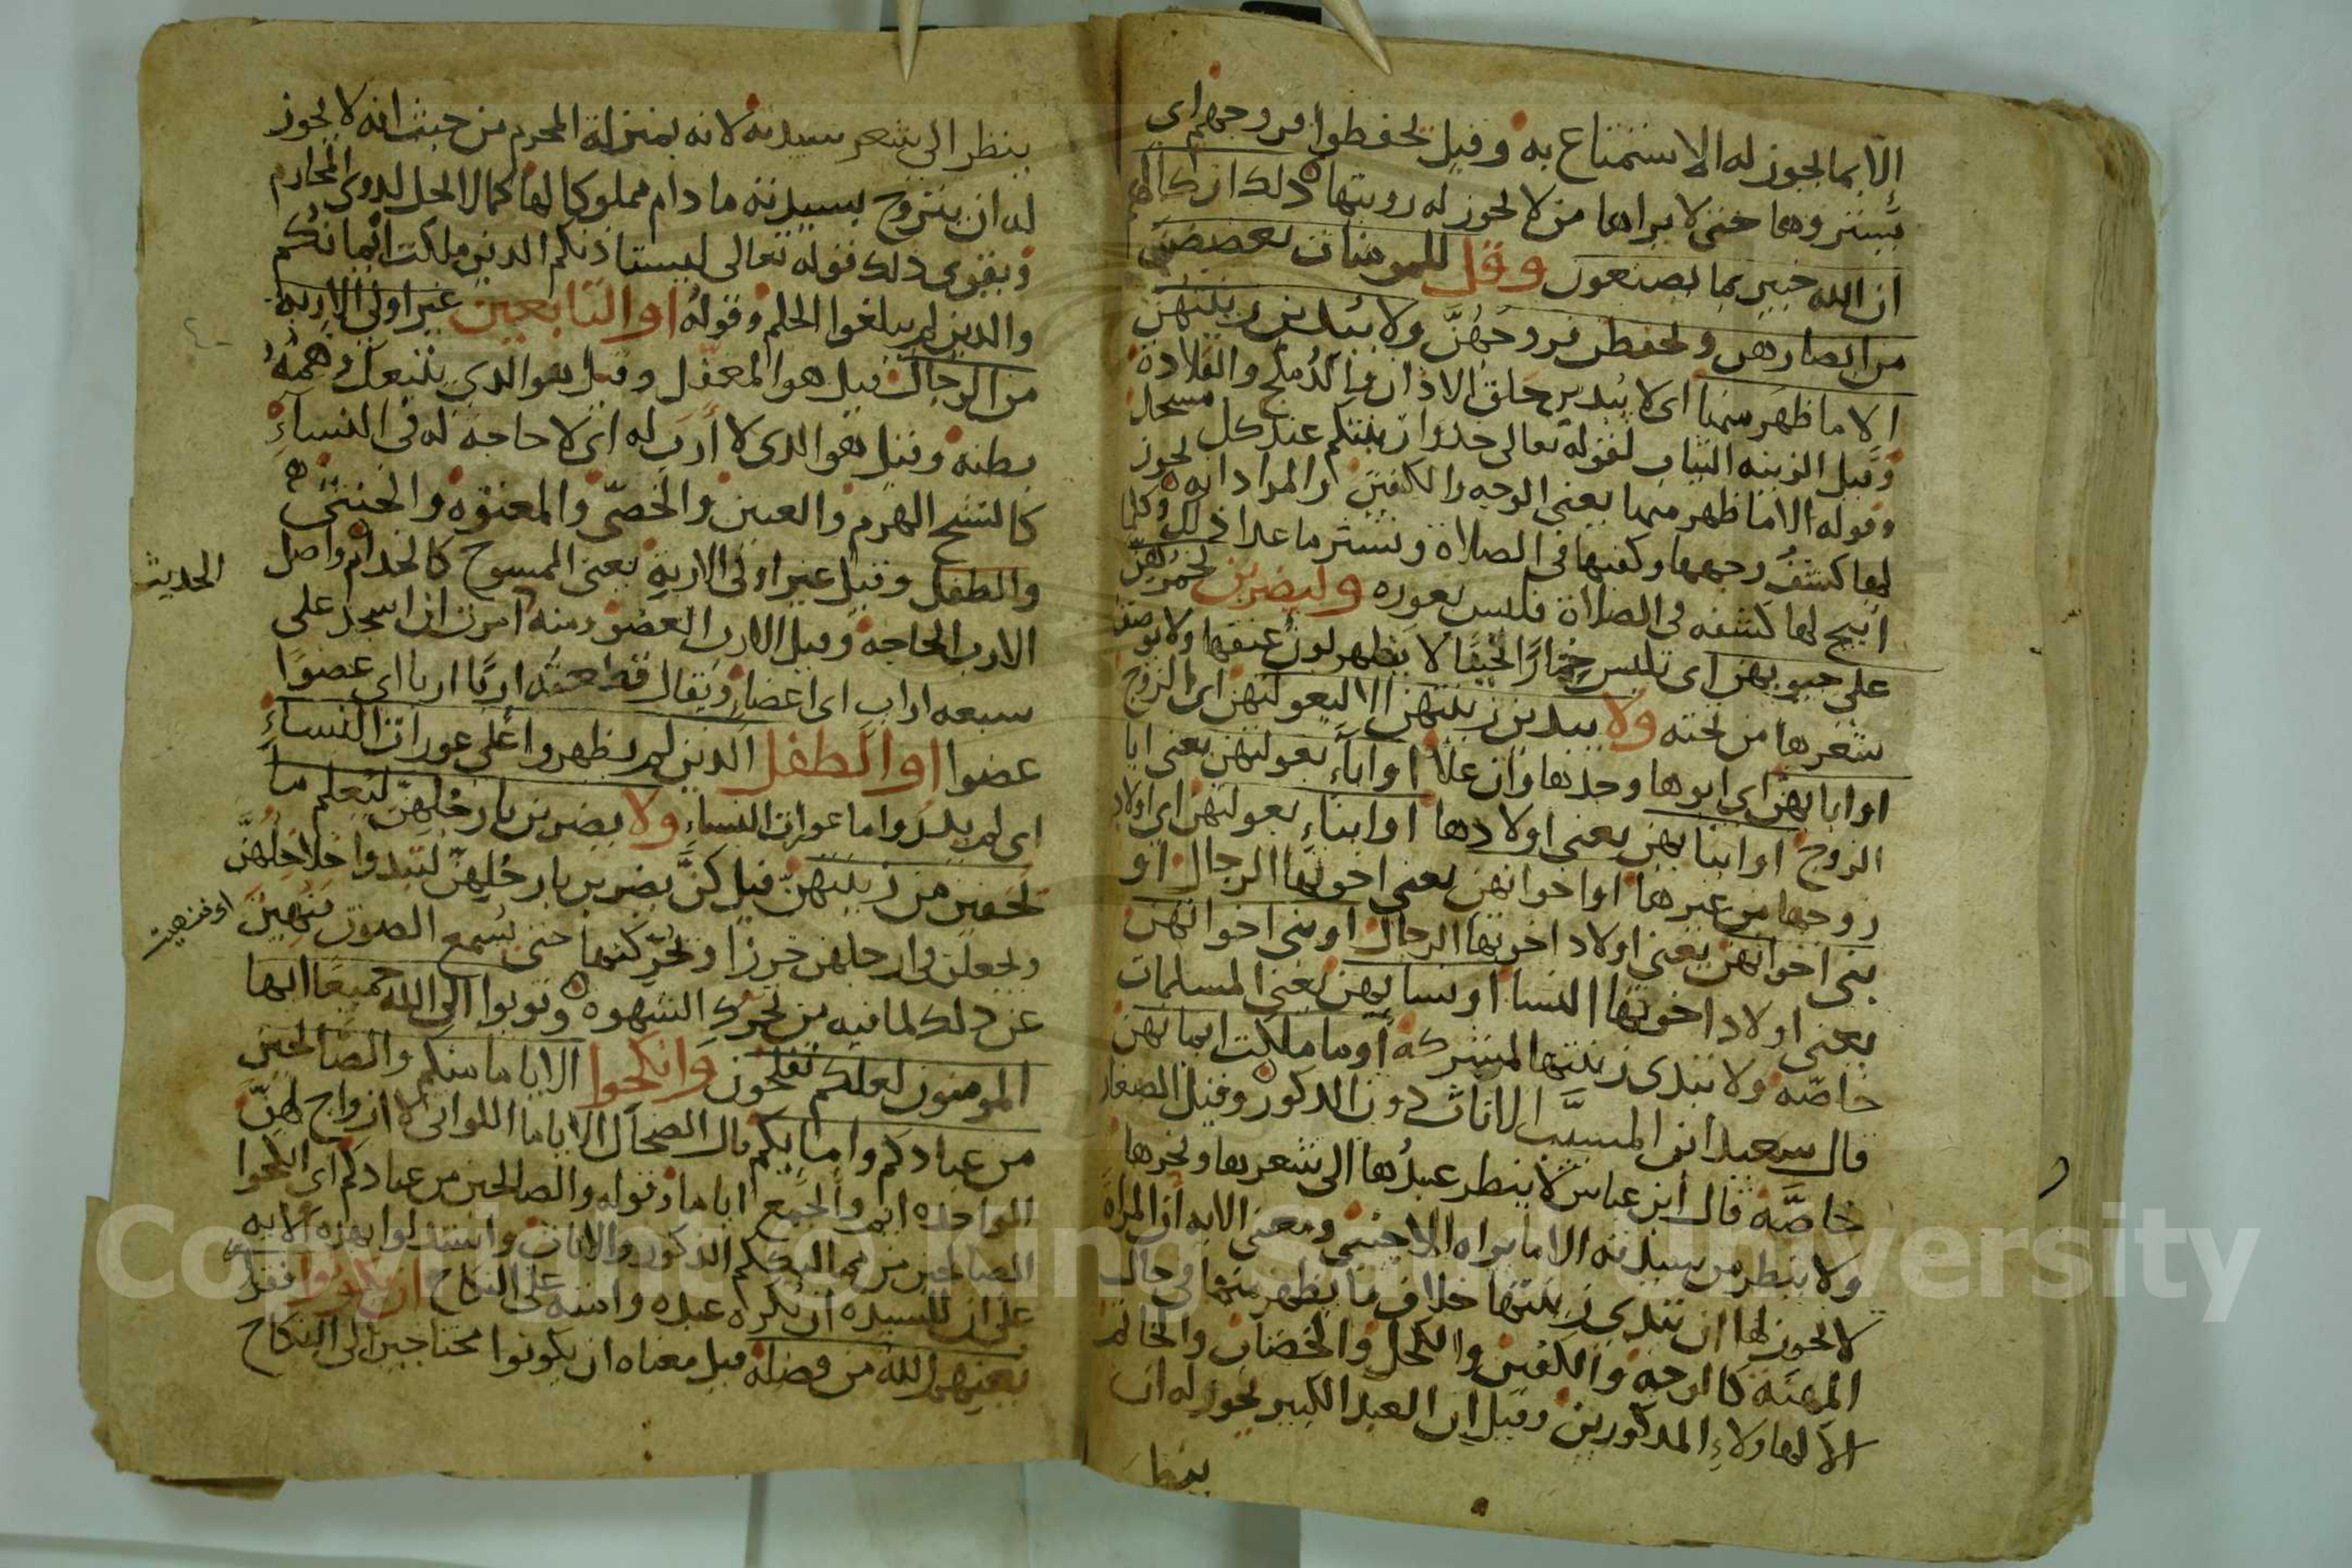 إلا بما يجوز له الاستمتاع به وقيل يحفظوا فروجهم اي
يستروها حتى لا يراها من لا يجوز له رويتها ذلك ازكا لهم
ان الله خبير بما يصنعون وقل للمومنات يغضضن
من ابصارهن ويحفظن فروجهن ولا يبدين زينتهن
الا ما ظهر منها اي لا يبدين حلق الاذان والدملج والقلادة
وقيل الزينه الثياب لقوله تعالى خذوا زينتكم عند كل مسجد
وقوله الا ما ظهر منها يعني الوجه والكفين والمراد انه يجوز
لها كشف وجهها وكفيها في الصلاة وتستر ما عدا ذلك وكلما
ابيح لها كشفه في الصلاة فليس بعوره وليضربن بخمرهن
على جيوبهن اي تلبس خمارا لا يظهر لون عنقها ولا يوصف
شعرها من تحته ولا يبدين زينتهن الا لبعولتهن اي الزوج
او ابايهن اي ابوها وجدها وان علا او اباء بعولتهن يعني ابا
الزوج او ابنايهن يعني اولادها او ابناء بعولتهن اي اولاد
زوجها من غيرها او اخوانهن يعني اخوتها الرجال او
بني اخوانهن يعني اولاد اخوتها الرجال او بني اخواتهن
يعني اولاد اخوتها النسا او نسايهن يعني المسلمات
خاصه ولا تبدى زينتها لمشركه او ما ملكت ايمانهن
قال سعيد ابن المسيب الاناث دون الذكور وقيل الصغار
خاصة قال ابن عباس لا ينظر عبدها الى شعرها ونحرها
ولا ينظر من سيدته الا ما يراه الاجنبي ومعنى الايه ان المراة
لا يجوز لها ان تبدي زينتها خلاف ما يظهر منها في حال
المهنه كالوجه والكفين والكحل والخضاب والخاتم
الا لهاولاء المذكورين وقيل ان العبد الكبير يجوز له ان
ينظر
ينظر الى شعر سيدته لانه بمنزلة المحرم من حيث انه لا يجوز
له ان يتزوج بسيدته ما دام مملوكا لها كما لا يحل لذوي المحارم
ويقوى ذلك قوله تعالى ليستاذنكم الذين ملكت ايمانكم
والذين لم يبلغوا الحلم وقوله او التابعين غير اولي الاربة
من الرجال قيل هو المغفل وقيل هو الذي يتبعك وهمته
بطنه وقيل هو الذى لا أرب له اي لا حاجة له في النساء
كالشيخ الهرم والعنين والخصي والمعتوه والخنثى
والطفل وقيل غير اولى الاربة يعني الممسوح كالخدام واصل
الحديث
الارب الحاجه وقيل الارب العضو ومنه امرت ان اسجد على
سبعه اراب اى اعضا ويقال قطعته اربا اربا اي عضوا
عضوا او الطفل الذين لم يظهروا على عورات النساء
اي لم يدروا ما عورات النساء ولا يضربن بارجلهن ليعلم ما
يخفين من زينتهن قيل كن يضربن بارجلهن لتبدوا خلاخلهن
ويجعلن في ارجلهن خرزا ويحركنها حتى يسمع الصوت فنهين
عن ذلك لما فيه من تحرك الشهوه وتوبوا الى الله جميعا ايها
المومنون لعلكم تفلحون وانكحوا الاياما منكم والصالحين
من عبادكم وامايكم قال الضحاك الاياما اللواتي لا ازواج لهن
الواحده ايم والجمع اياما وقوله والصالحين من عبادكم اي انكحوا
الصالحين من مماليككم الذكور والاناث واستدلوا بهذه الايه
على ان للسيده ان يكره عبده وامته على النكاح ان يكونوا فقرا
يغنيهم الله من فضله قيل معناه ان يكونوا محتاجين الى النكاح
Copyright © King Saud University